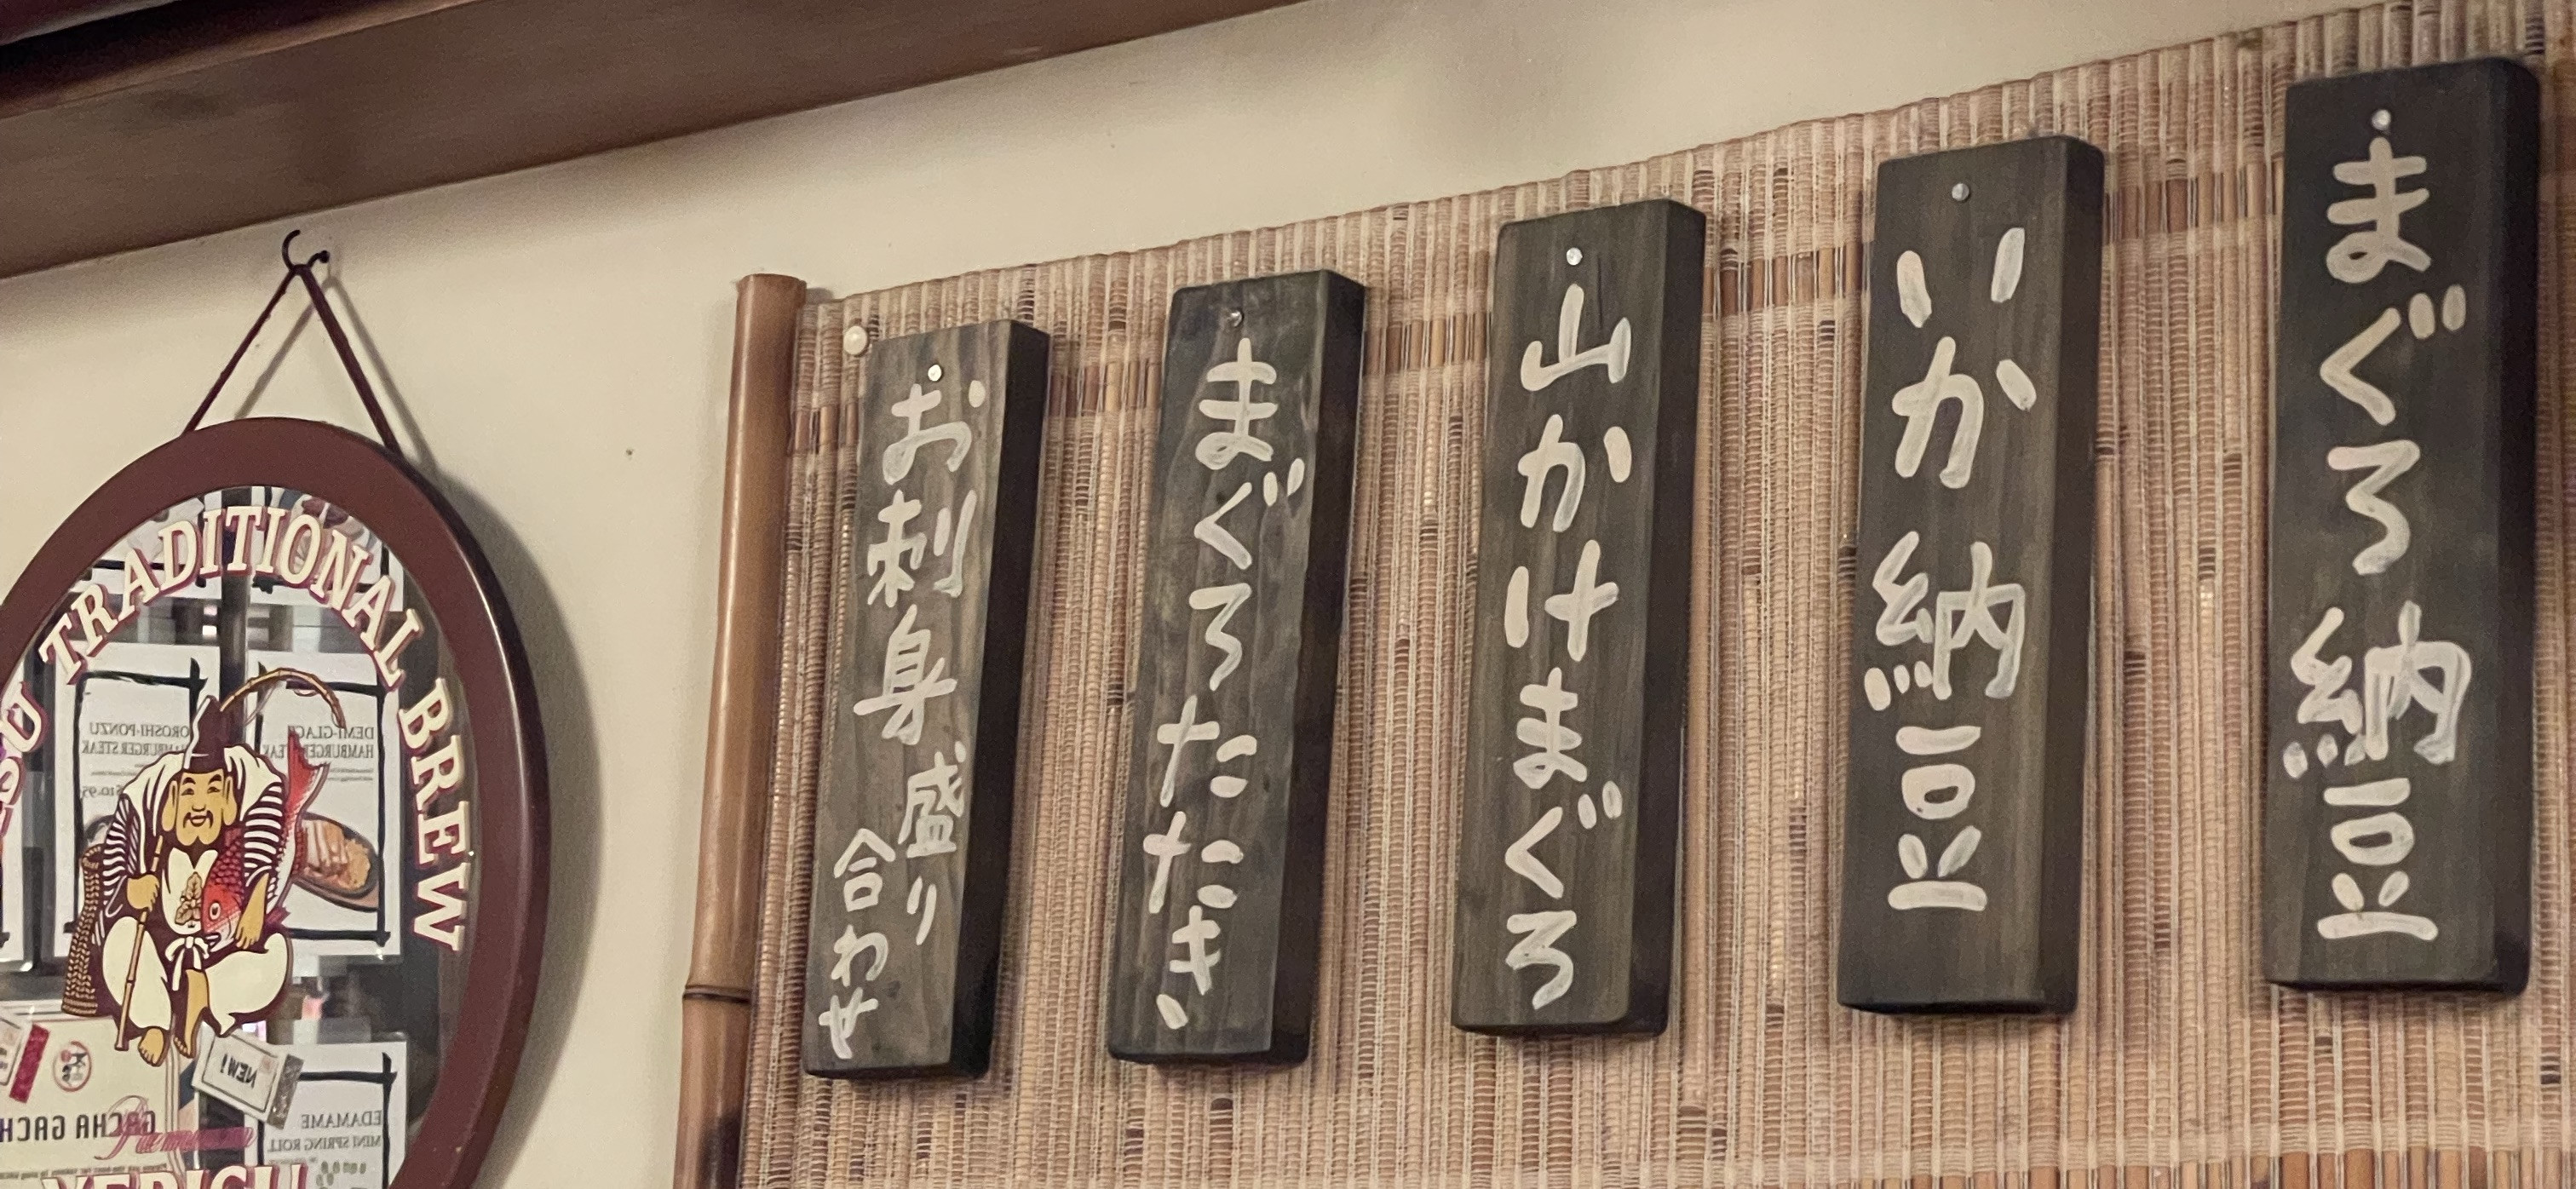 まぐろ納豆
いか納豆
山かけまぐろ
まぐろたたき
お刺身盛り合わせ
TRADITIONAL BREW
YEBISU
OROSHI-PONZU
HAMBURGER STEAK
DEMI-GLACE
HAMBURGER STEAK
NEW!
GACHA GACH
EDAMAME
MINI SPRING ROLL